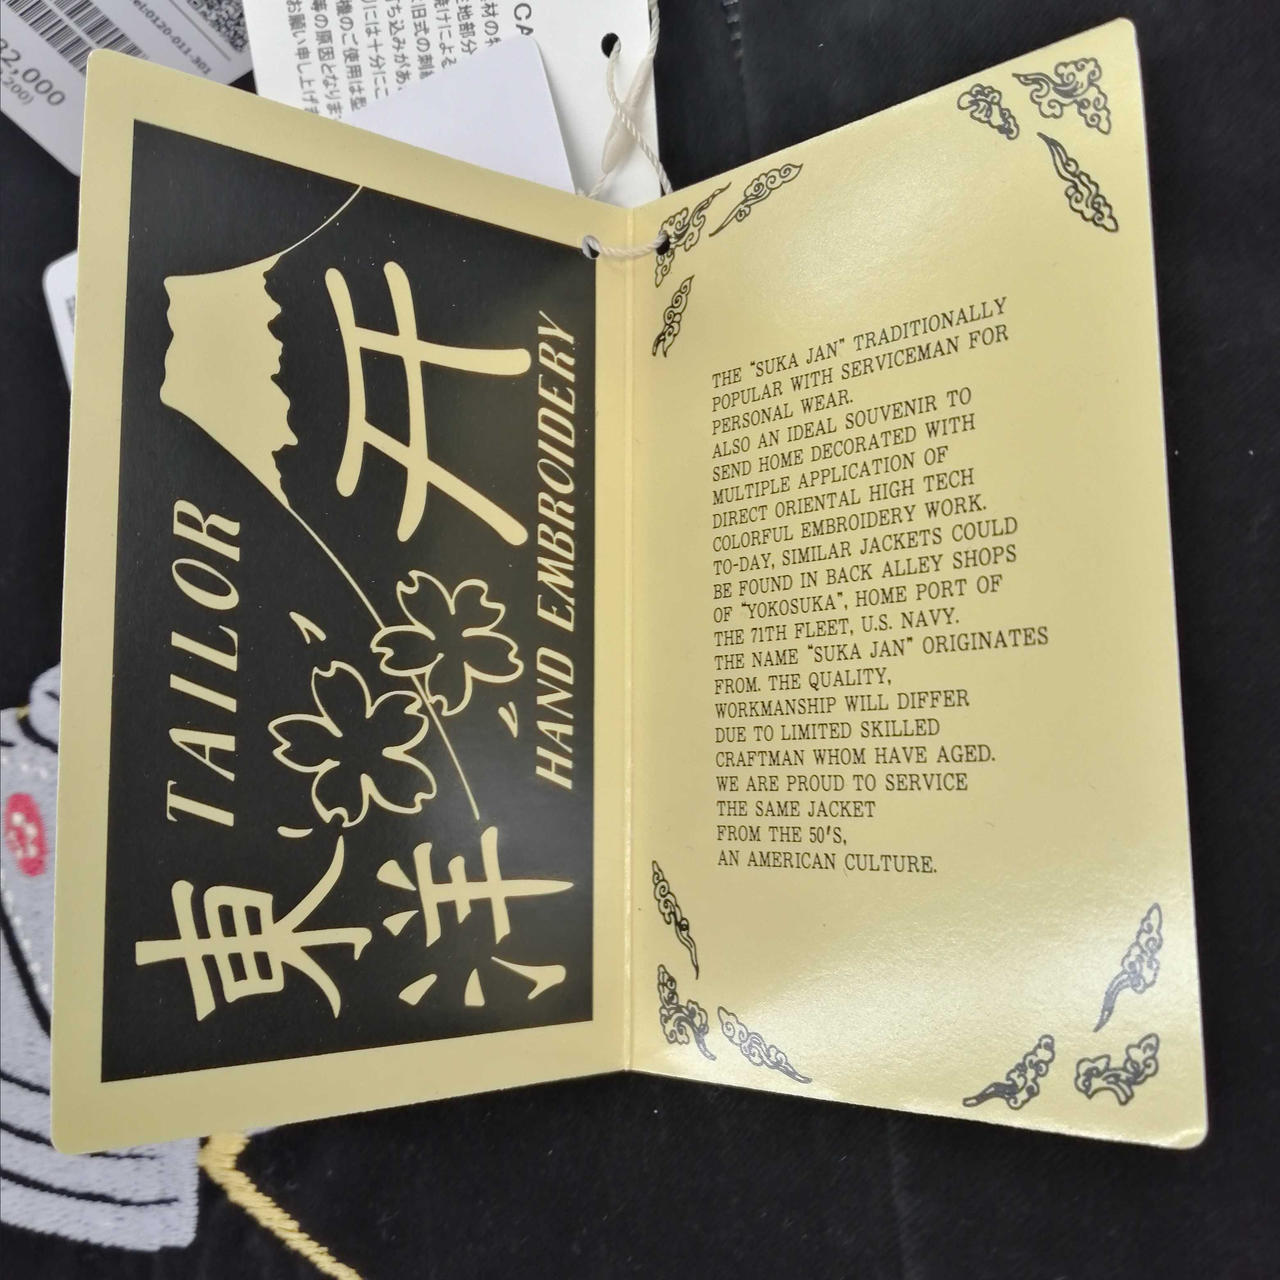 22,000
Tel:0120-011-301
TAILOR
東洋
HAND EMBROIDERY
THE "SUKA JAN" TRADITIONALLY
POPULAR WITH SERVICEMAN FOR
PERSONAL WEAR.
ALSO AN IDEAL SOUVENIR TO
SEND HOME DECORATED WITH
MULTIPLE APPLICATION OF
DIRECT ORIENTAL HIGH TECH
COLORFUL EMBROIDERY WORK.
TO-DAY, SIMILAR JACKETS COULD
BE FOUND IN BACK ALLEY SHOPS
OF "YOKOSUKA", HOME PORT OF
THE 71TH FLEET, U.S. NAVY.
THE NAME "SUKA JAN" ORIGINATES
FROM. THE QUALITY,
WORKMANSHIP WILL DIFFER
DUE TO LIMITED SKILLED
CRAFTMAN WHOM HAVE AGED.
WE ARE PROUD TO SERVICE
THE SAME JACKET
FROM THE 50'S,
AN AMERICAN CULTURE.